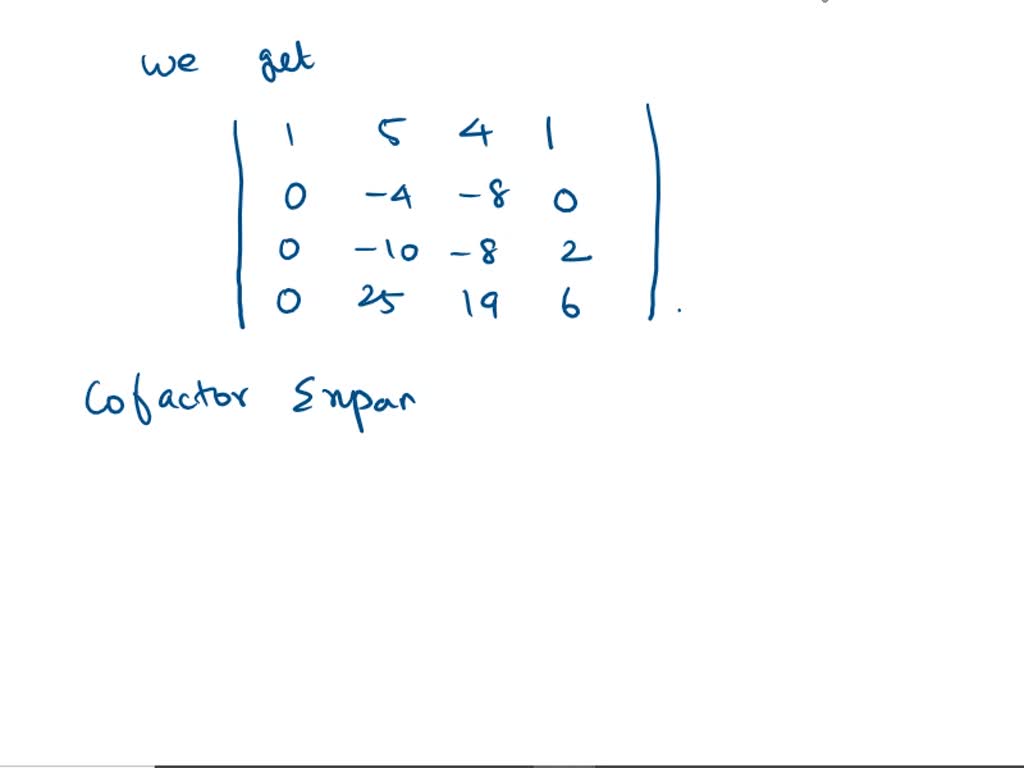 we get
| 1 5 4 1 |
| 0 -4 -8 0 |
| 0 -10 -8 2 |
| 0 25 19 6 | .
Cofactor Expan